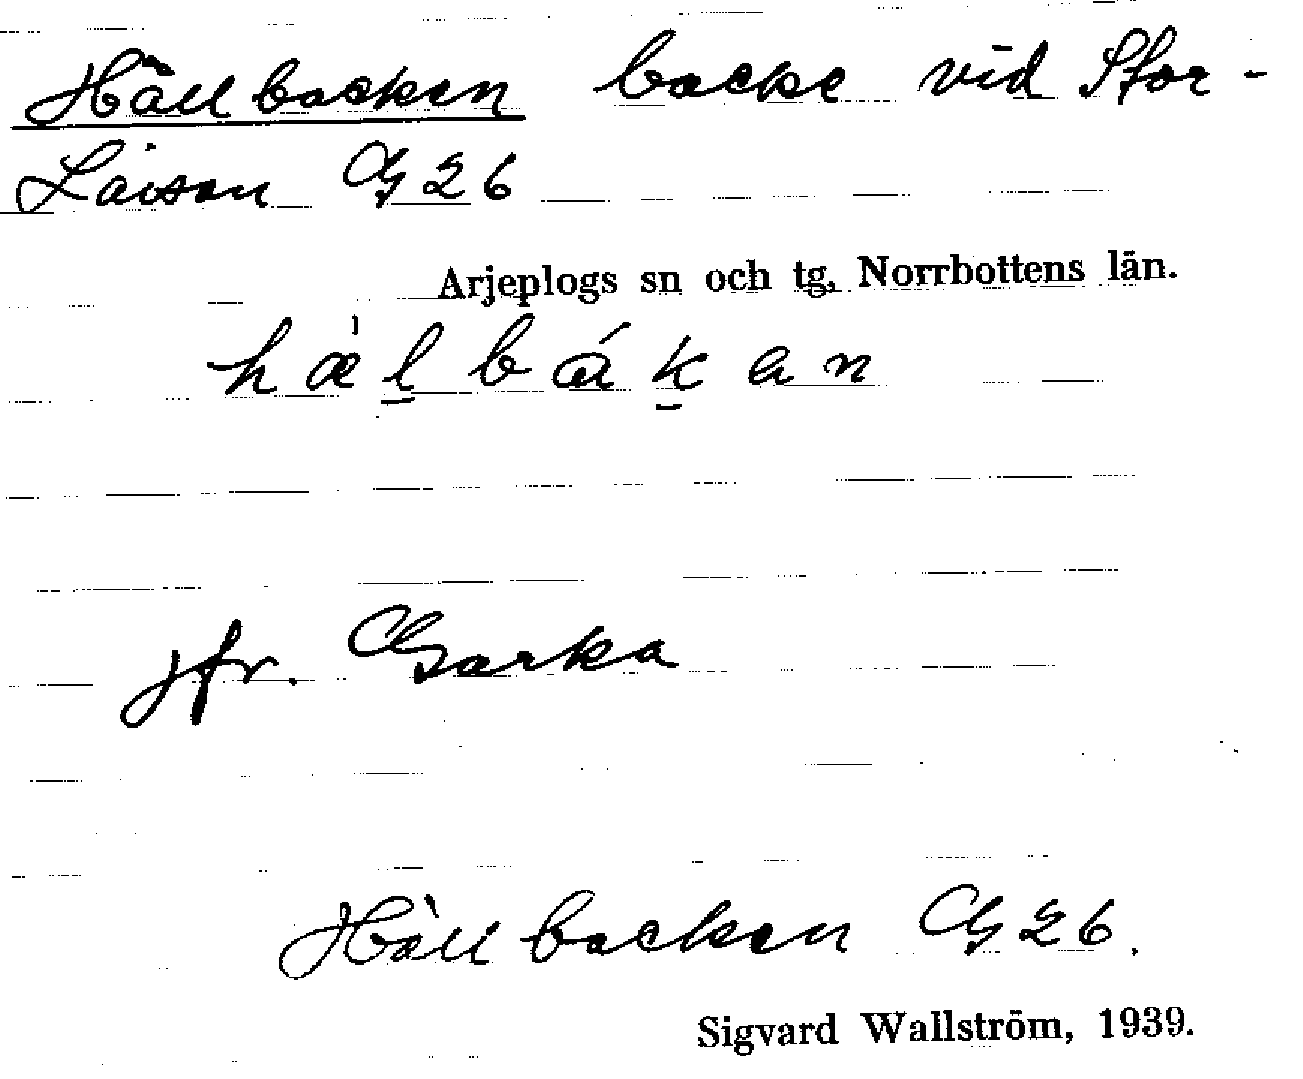 Hällbacken backe vid Stor-
Laisan G 26
Arjeplogs sn och tg, Norrbottens län.
hæ̀l̲bák̲an
jfr. Garka
Hällbacken G 26.
Sigvard Wallström, 1939.